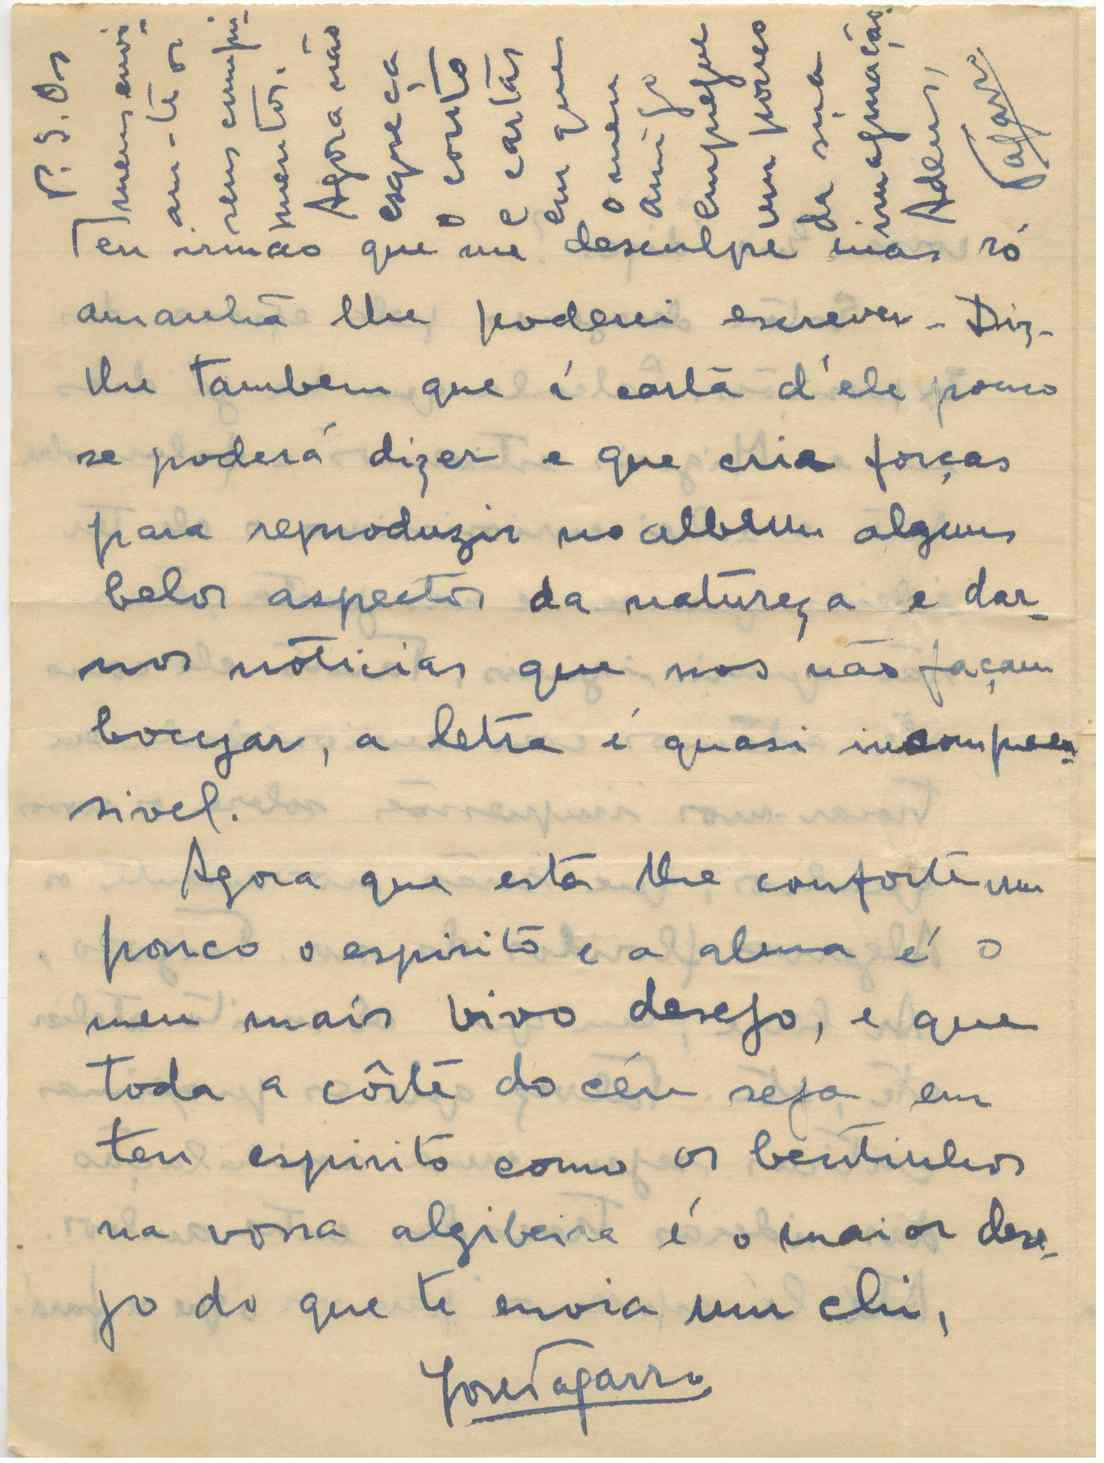 Teu irmão que me desculpe mas só
amanhã lhe poderei escrever - Diz-
lhe tambem que á carta d'ele pouco
se poderá dizer e que cria forças
para reproduzir no album alguns
belos aspectos da natureza e dar-
nos nóticias que nos não façam
bocejar, a letra é quasi incompreen-
sivel.
Agora que esta lhe conforte um
pouco o espirito e a alma é o
meu mais vivo desejo, e que
toda a côrte do céu seja em
teu espirito como os bentinhos
na vossa algibeira é o maior dese-
jo do que te envia um chi,
José Tagarro
P.S. Os
meus envi-
am-te os
seus cumpri-
mentos.
Agora não
esqueça
o conto
e cartas
em que
o meu
amigo
empregue
um pouco
da sua
imaginação.
Adeus,
Tagarro